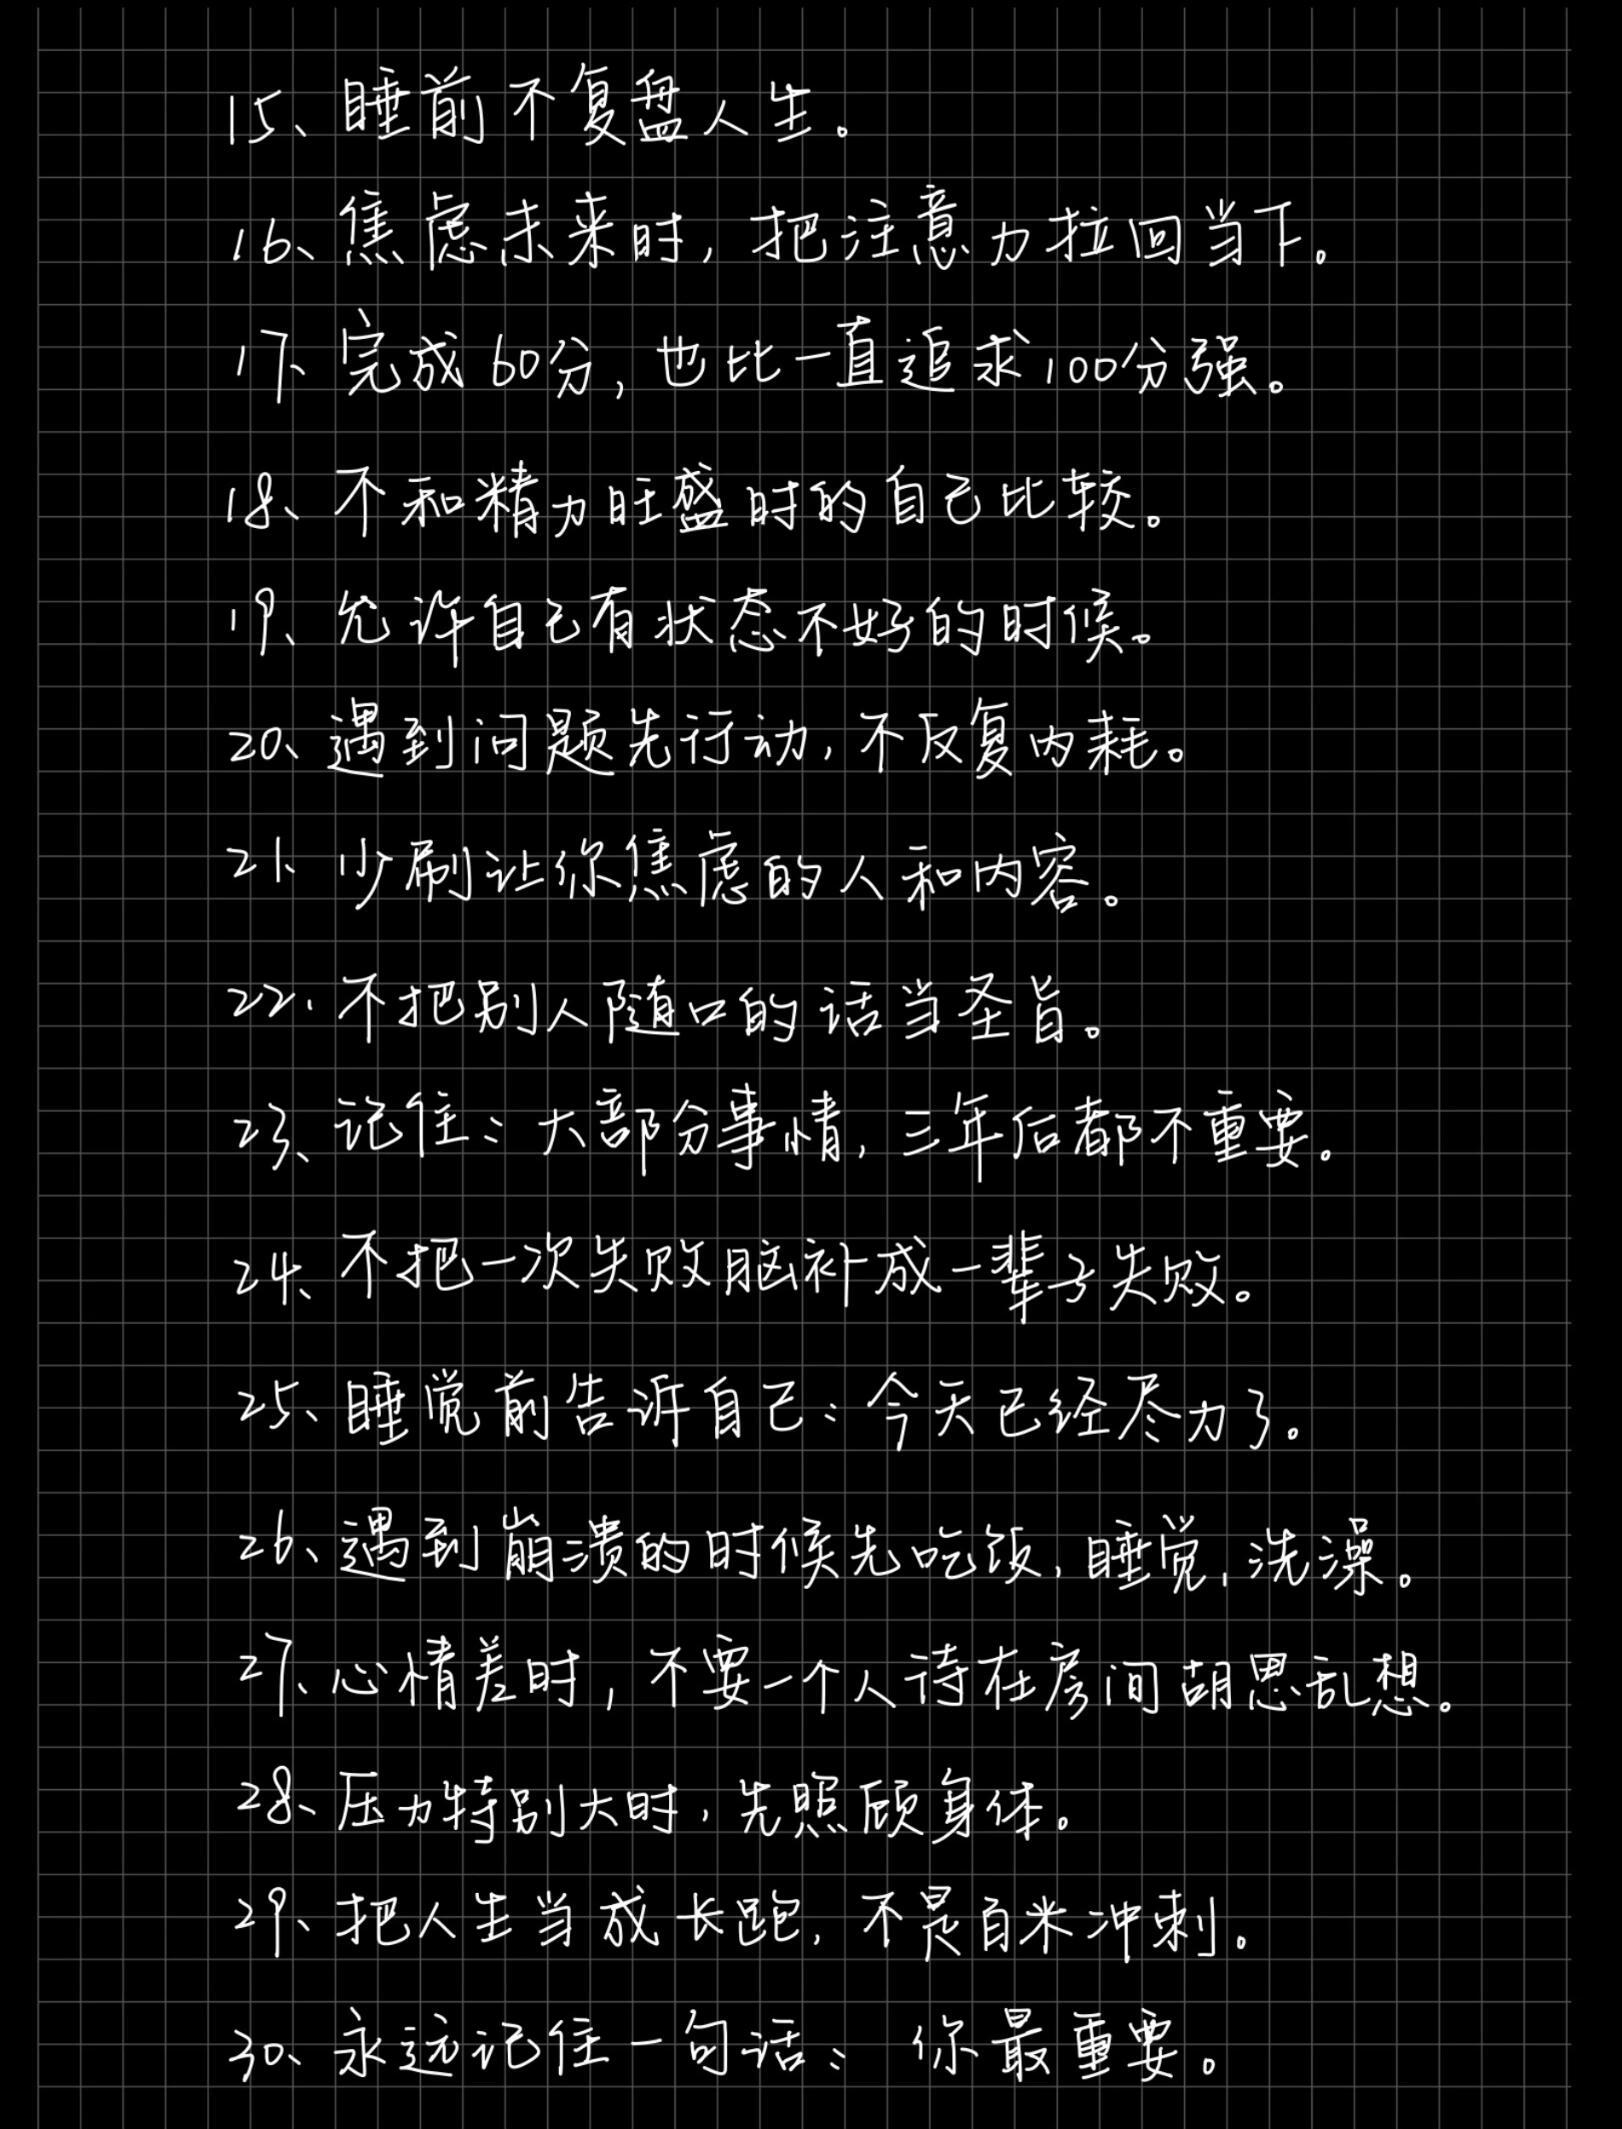 15、睡前不复盘人生。
16、焦虑未来时，把注意力拉回当下。
17、完成60分，也比一直追求100分强。
18、不和精力旺盛时的自己比较。
19、允许自己有状态不好的时候。
20、遇到问题先行动，不反复内耗。
21、少刷让你焦虑的人和内容。
22、不把别人随口的话当圣旨。
23、记住：大部分事情，三年后都不重要。
24、不把一次失败脑补成一辈子失败。
25、睡觉前告诉自己：今天已经尽力了。
26、遇到崩溃的时候先吃饭，睡觉，洗澡。
27、心情差时，不要一个人待在房间胡思乱想。
28、压力特别大时，先照顾身体。
29、把人生当成长跑，不是百米冲刺。
30、永远记住一句话：你最重要。